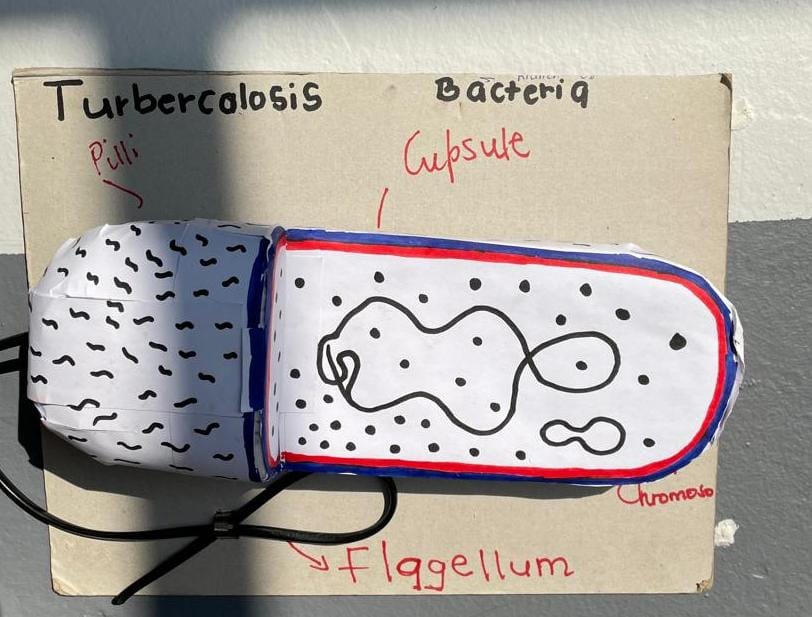 Turbercolosis Bacteria
Pilli
Cupsule
Chromoso
Flagellum